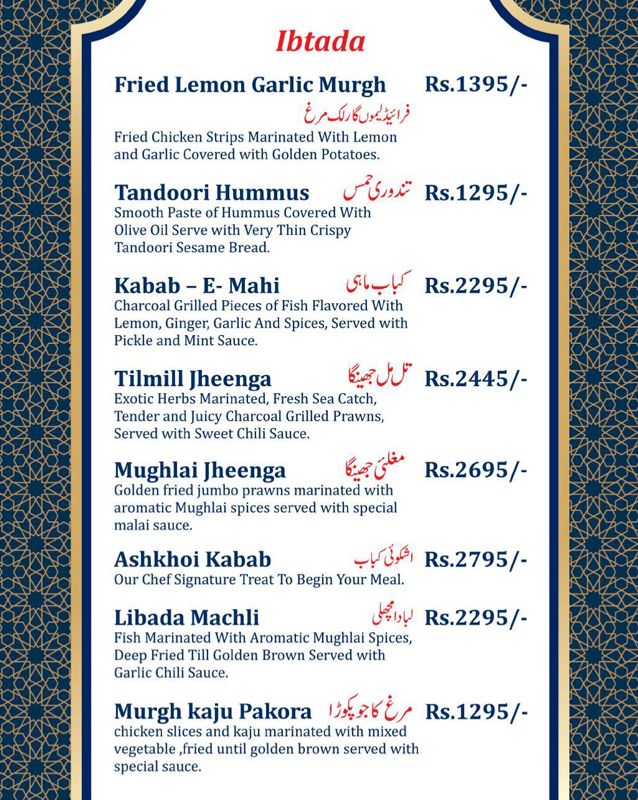 Ibtada
Fried Lemon Garlic Murgh Rs.1395/-
فرائیڈ لیموں گارلک مرغ
Fried Chicken Strips Marinated With Lemon
and Garlic Covered with Golden Potatoes.
Tandoori Hummus تندوری حمس Rs.1295/-
Smooth Paste of Hummus Covered With
Olive Oil Serve with Very Thin Crispy
Tandoori Sesame Bread.
Kabab – E- Mahi کباب ماہی Rs.2295/-
Charcoal Grilled Pieces of Fish Flavored With
Lemon, Ginger, Garlic And Spices, Served with
Pickle and Mint Sauce.
Tilmill Jheenga تل مل جھینگا Rs.2445/-
Exotic Herbs Marinated, Fresh Sea Catch,
Tender and Juicy Charcoal Grilled Prawns,
Served with Sweet Chili Sauce.
Mughlai Jheenga مغلئی جھینگا Rs.2695/-
Golden fried jumbo prawns marinated with
aromatic Mughlai spices served with special
malai sauce.
Ashkhoi Kabab اشکوئی کباب Rs.2795/-
Our Chef Signature Treat To Begin Your Meal.
Libada Machli لبادا مچھلی Rs.2295/-
Fish Marinated With Aromatic Mughlai Spices,
Deep Fried Till Golden Brown Served with
Garlic Chili Sauce.
Murgh kaju Pakora مرغ کاجو پکوڑا Rs.1295/-
chicken slices and kaju marinated with mixed
vegetable ,fried until golden brown served with
special sauce.